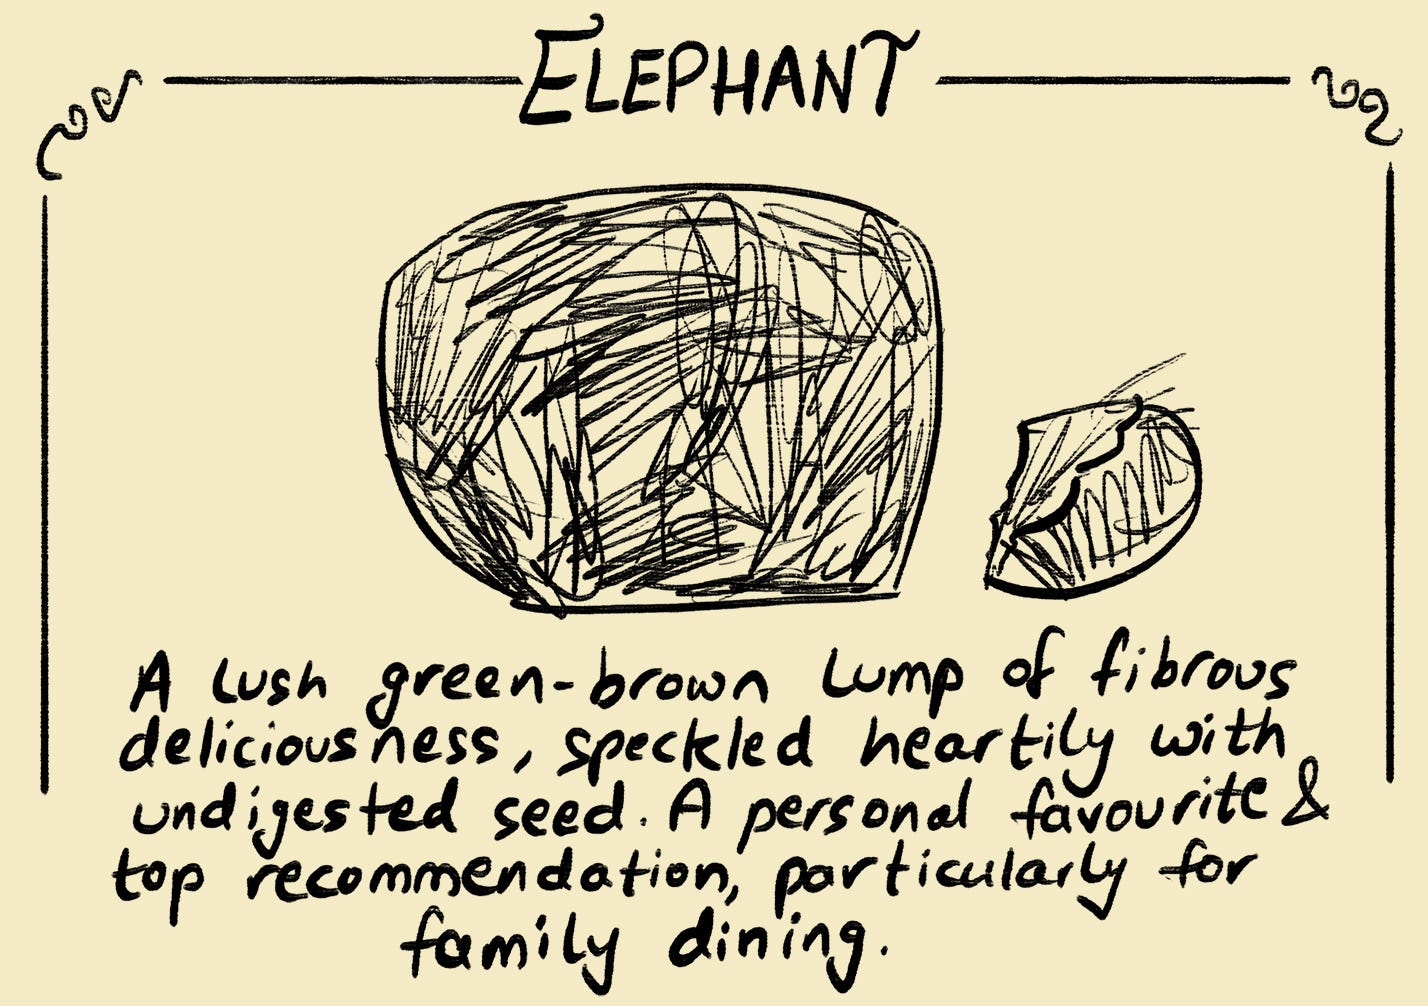 ELEPHANT
A lush green-brown lump of fibrous
deliciousness, speckled heartily with
undigested seed. A personal favourite &
top recommendation, particularly for
family dining.